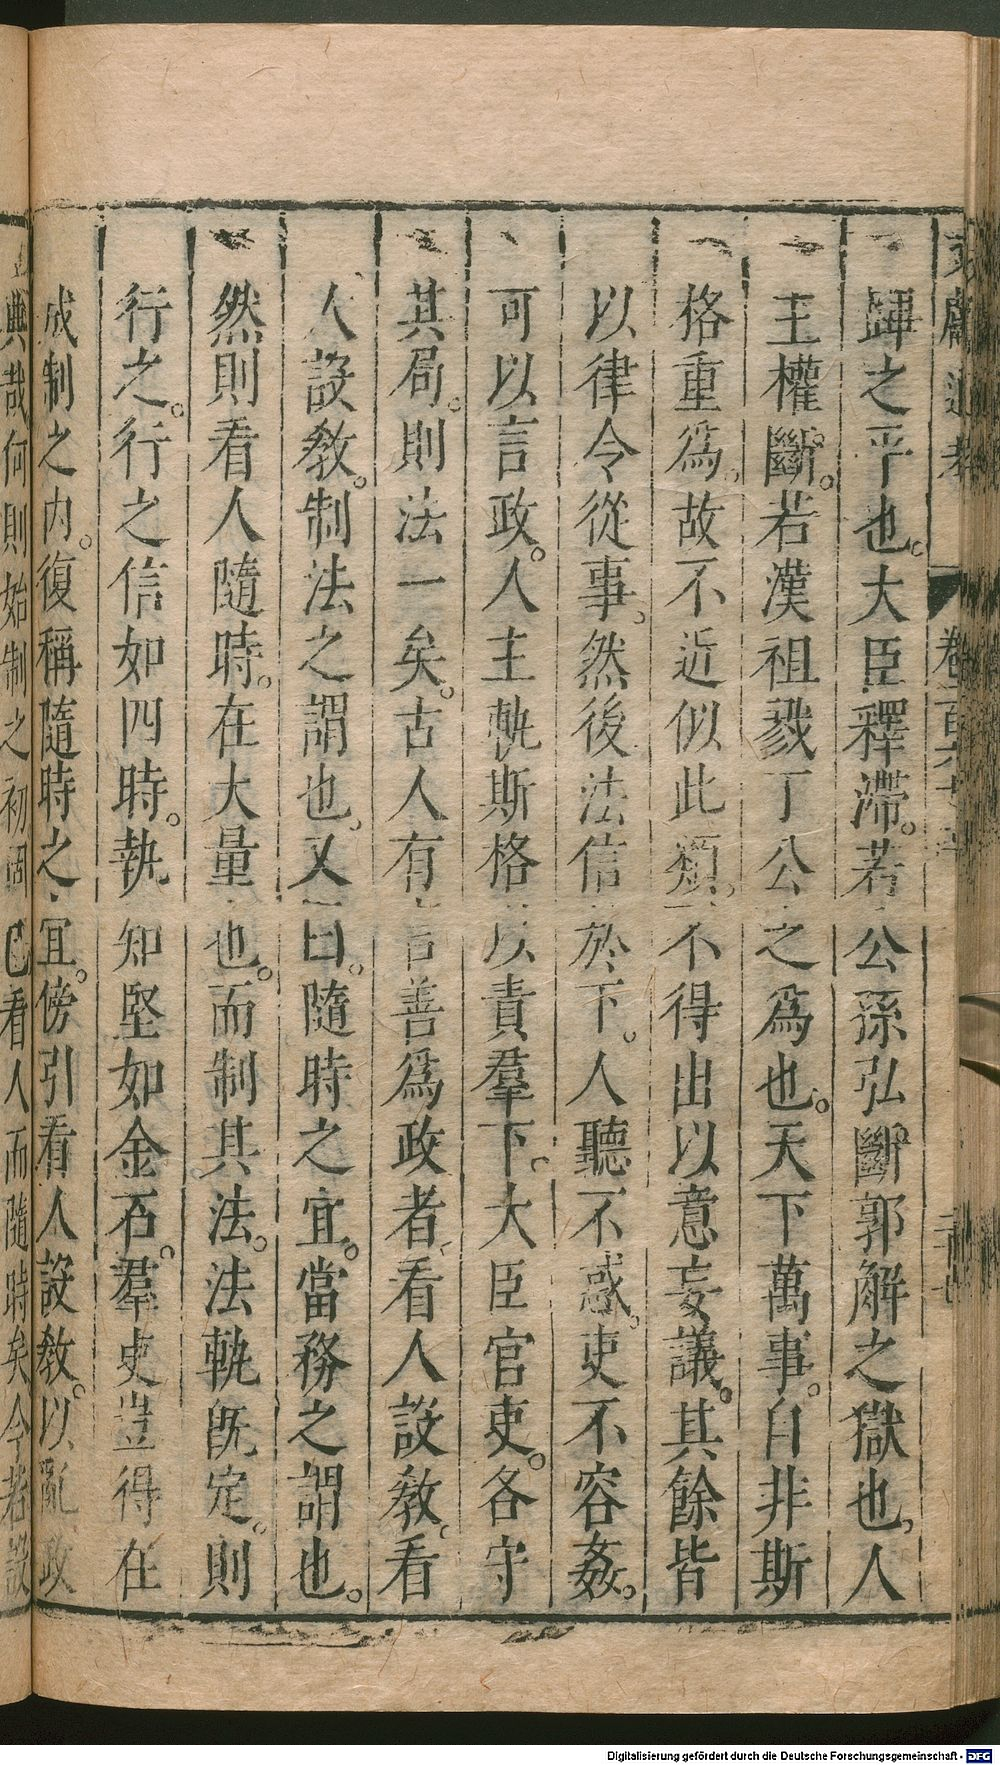 文獻通考 卷百六十
蹕之平也。大臣釋滯。若公孫弘斷郭解之獄也。人
主權斷。若漢祖戮丁公之爲也。天下萬事。自非斯
格重爲。故不近似此類。不得出以意妄議。其餘皆
以律令從事。然後法信於下。人聽不惑。吏不容姦。
可以言政。人主軌斯格以責羣下。大臣官吏。各守
其局。則法一矣。古人有言善爲政者。看人設敎。看
人設敎。制法之謂也。又曰。隨時之宜。當務之謂也。
然則看人隨時。在大量也。而制其法。法軌旣定。則
行之。行之信如四時。執之堅如金石。羣吏豈得在
成制之内。復稱隨時之宜。傍引看人設敎。以亂政
典哉何則始制之初固已看人而隨時矣今若設
Digitalisierung gefördert durch die Deutsche Forschungsgemeinschaft - DFG